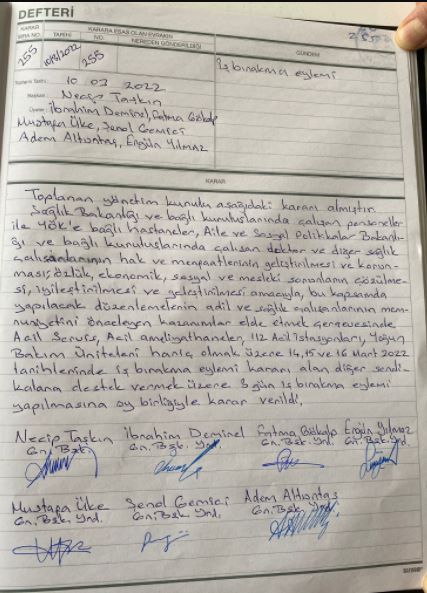 DEFTERİ
KARAR
SIRA NO. TARİHİ
KARARA ESAS OLAN EVRAKIN
NO. NEREDEN GÖNDERİLDİĞİ
GÜNDEM
255 10/3/2022 255
İş bırakma eylemi
Toplantı Tarihi: 10 03 2022
Başkan: Necip Taşkın
Üyeler: İbrahim Deminel, Fatma Gökalp
Mustafa Ülke, Şenol Gemici
Adem Altıntaş, Ergün Yılmaz
KARAR
Toplanan yönetim kurulu aşağıdaki kararı almıştır.
Sağlık Bakanlığı ve bağlı kuruluşlarında çalışan personeller
ile Yök'e bağlı hastaneler, Aile ve Sosyal Politikalar Bakanlı-
ğı ve bağlı kuruluşlarında çalışan doktor ve diğer sağlık
çalışanlarının hak ve menfaatlerinin geliştirilmesi ve korun-
ması; özlük, ekonomik, sosyal ve mesleki sorunların çözülme-
si, iyileştirilmesi ve geliştirilmesi amacıyla, bu kapsamda
yapılacak düzenlemelerin adil ve sağlık çalışanlarının mem-
nuniyetini önceleyen kazanımlar elde etmek çerçevesinde
Acil Servis, Acil ameliyathaneler, 112 Acil İstasyonları, Yoğun
Bakım Üniteleri hariç olmak üzere 14, 15 ve 16 Mart 2022
tarihlerinde iş bırakma eylemi kararı alan diğer sendi-
kalara destek vermek üzere 3 gün iş bırakma eylemi
yapılmasına oy birliğiyle karar verildi.
Necip Taşkın İbrahim Deminel Fatma Gökalp Ergün Yılmaz
Gn. Bşk Gn. Bşk. Yrd. Gn. Bşk. Yrd. Gn. Bşk. Yrd.
Mustafa Ülke Şenol Gemici Adem Altıntaş
Gn. Bşk. Yrd. Gn. Bşk. Yrd. Gn. Bşk. Yrd.